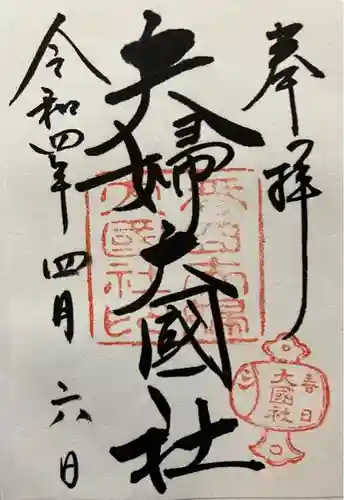 奉拝
夫婦大國社
令和四年四月六日
春日
大國社